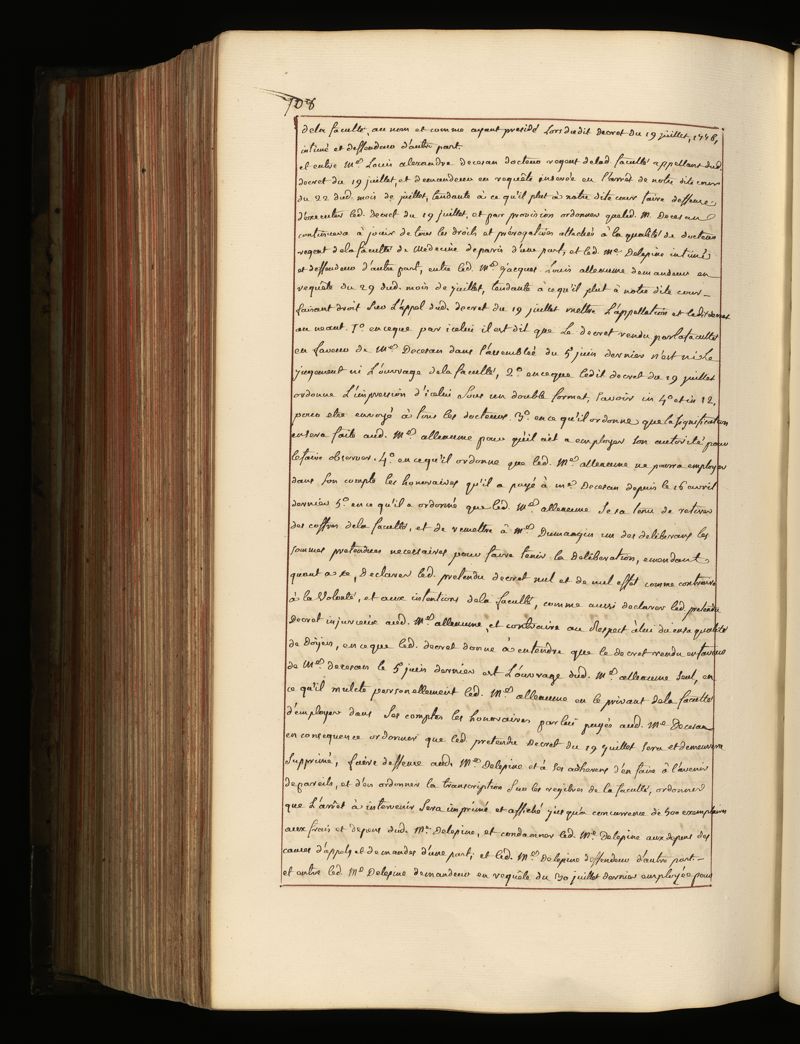 708
dela faculté, au nom et comme ayant presidé Lors dudit Decret du 19 juillet, 1776,
intimé et deffendeur d'autre part.
et entre Me. Louis alexandre. decesan docteur regent delad. faculté appellant dud.
decret du 19 juillet, et demandeur en requête inserée en l'arrêt de notre dite cour
du 22 dud. mois de juillet, tendante à ce qu'il plut à notre dite cour faire deffense
d'executer led. decret du 19 juillet, et par provision ordonner queled. M. Decesan
continuera à jouir de tous les droits et prérogatives attachés à la qualité de docteur
regent dela faculté de Médecine deparis d'une part; et led. Me. Delepine intimé
et deffendeur d'autre part, entre led. Me. jacques Louis alleaume demandeur en
requête du 29 dud. mois de juillet, tendante à cequ'il plut à notre dite cour
faisant droit sur L'appel dud. decret du 19 juillet mettre L'appellation et
au neant. 1o. en ceque par icelui il est dit que Le decret rendu parlafaculté
en faveur de Me. Decesan dans l'assemblée du 5 juin dernier n'est ni Le
jugement ni L'ouvrage dela faculté, 2o. enceque ledit decret du 19 juillet
ordonne L'impression d'icelui sous un double format, savoir in 4o. et in 12,
pour etre envoyé à tous les docteurs. 3o. en ce qu'il ordonne que la signification
ensera faite aud. Me. alleaume pour qu'il ait a employer son autorité pour
le faire observer. 4o. en ce qu'il ordonne que led. Me. alleaume ne pourra employer
dans son compte les honoraires qu'il a payé à me. Decesan depuis le 16 avril
dernier 5o. en ce qu'il a ordonné que led. Me. alleaume sera tenu de retirer
des coffres dela faculté, et de remettre à Me. Dumangin un des deliberans les
sommes pretendues necessaires pour faire tenir la Délibération, emendant
quant a ce, Declarer led. pretendu decret nul et de nul effet comme contraire
à la Volonté, et aux intentions dela faculté, comme aussi declarer led. pretendu
Decret injurieux aud. Me. alleaume, et contraire au Respect à lui du ensa qualité
de Doyen, en ceque led. decret donne à entendre que le decret rendu enfaveur
de Me. decesan le 5 juin dernier est L'ouvrage dud. Me. alleaume seul, en
ce qu'il mulcte personellement led. Me. alleaume en le privant dela faculté
d'employer dans ses comptes les honoraires par lui payés aud. Me. Decesan
en consequence ordonner que led. pretendu Decret du 19 juillet sera et demeurera
supprimé, faire deffense aud. Me. Delepine et à ses adherens d'en faire à l'avenir
de pareils, et d'en ordonner la transcription sur les registres de la faculté, ordonner
que L'arrêt à intervenir sera imprimé et affiché jusqu'à concurrence de 500 exemplaires
aux frais et depens dud. Me. Delepine, et condamner led. Me. Delepine aux depens des
causes d'appels et demandes d'une part; et led. Me. Delepine deffendeur d'autre part
et entre led. Me. Delepine demandeur en requête du 30 juillet dernier employée pour